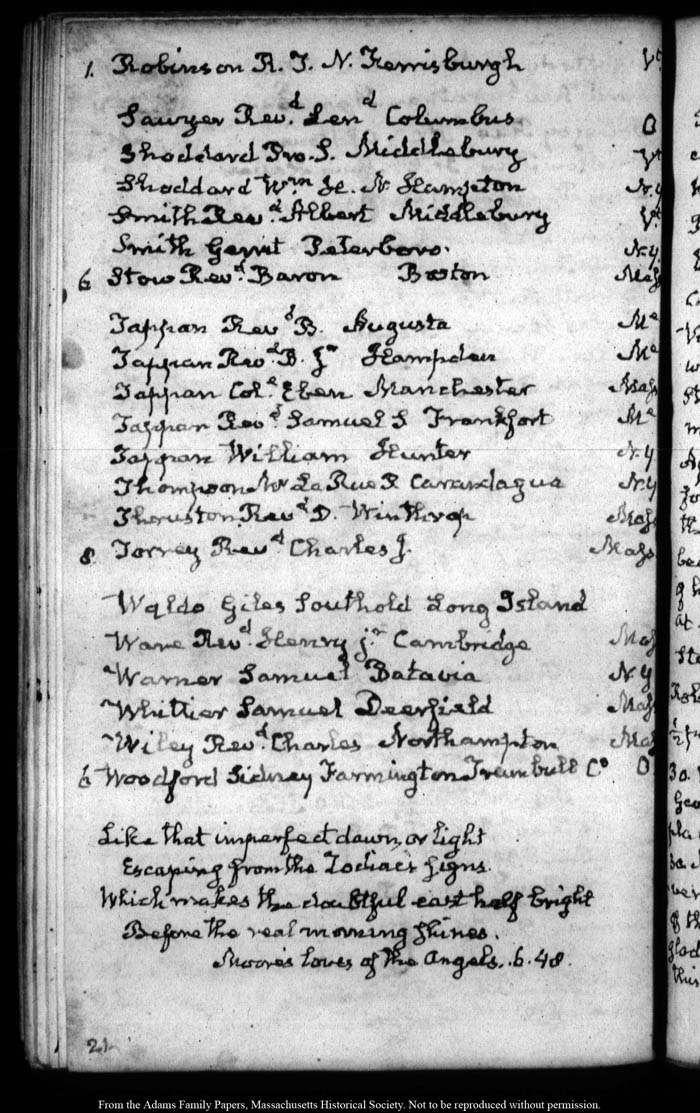 1. Robinson R. T. N. Ferrisburgh Vt
Sawyer Revd. Lend Columbus O
Shoddard Pro. S. Middlebury Vt
Shoddard Wm H. N. Hampton N.Y
Smith Revd. Albert Middlebury Vt
Smith Gerrit Peterboro. N.Y.
6 Stow Revd. Baron Boston Mass
Tappan Revd B. Augusta Me
Tappan Revd. B. Jr Hampden Me
Tappan Col. Eben Manchester Mass
Tappan Revd. Samuel S Frankfort Me
Tappan William Hunter N.Y
Thompson Mr La Rue P. Canandagua N.Y
Thurston Revd D. Winthrop Mass
8. Torrey Revd Charles J. Mass
Waldo Giles Southold Long Island
Ware Revd. Henry jr. Cambridge Mass
Warner Samuel Batavia N.Y
Whittier Samuel Deerfield Mass
Wiley Revd. Charles Northampton Mass
6 Woodford Sidney Farmington Trumbull Co O
Like that imperfect dawn, or light
Escaping from the Zodiac's signs.
Which makes the doubtful east half bright
Before the real morning shines.
Moore's loves of the Angels. .6. 48.
21.
From the Adams Family Papers, Massachusetts Historical Society. Not to be reproduced without permission.